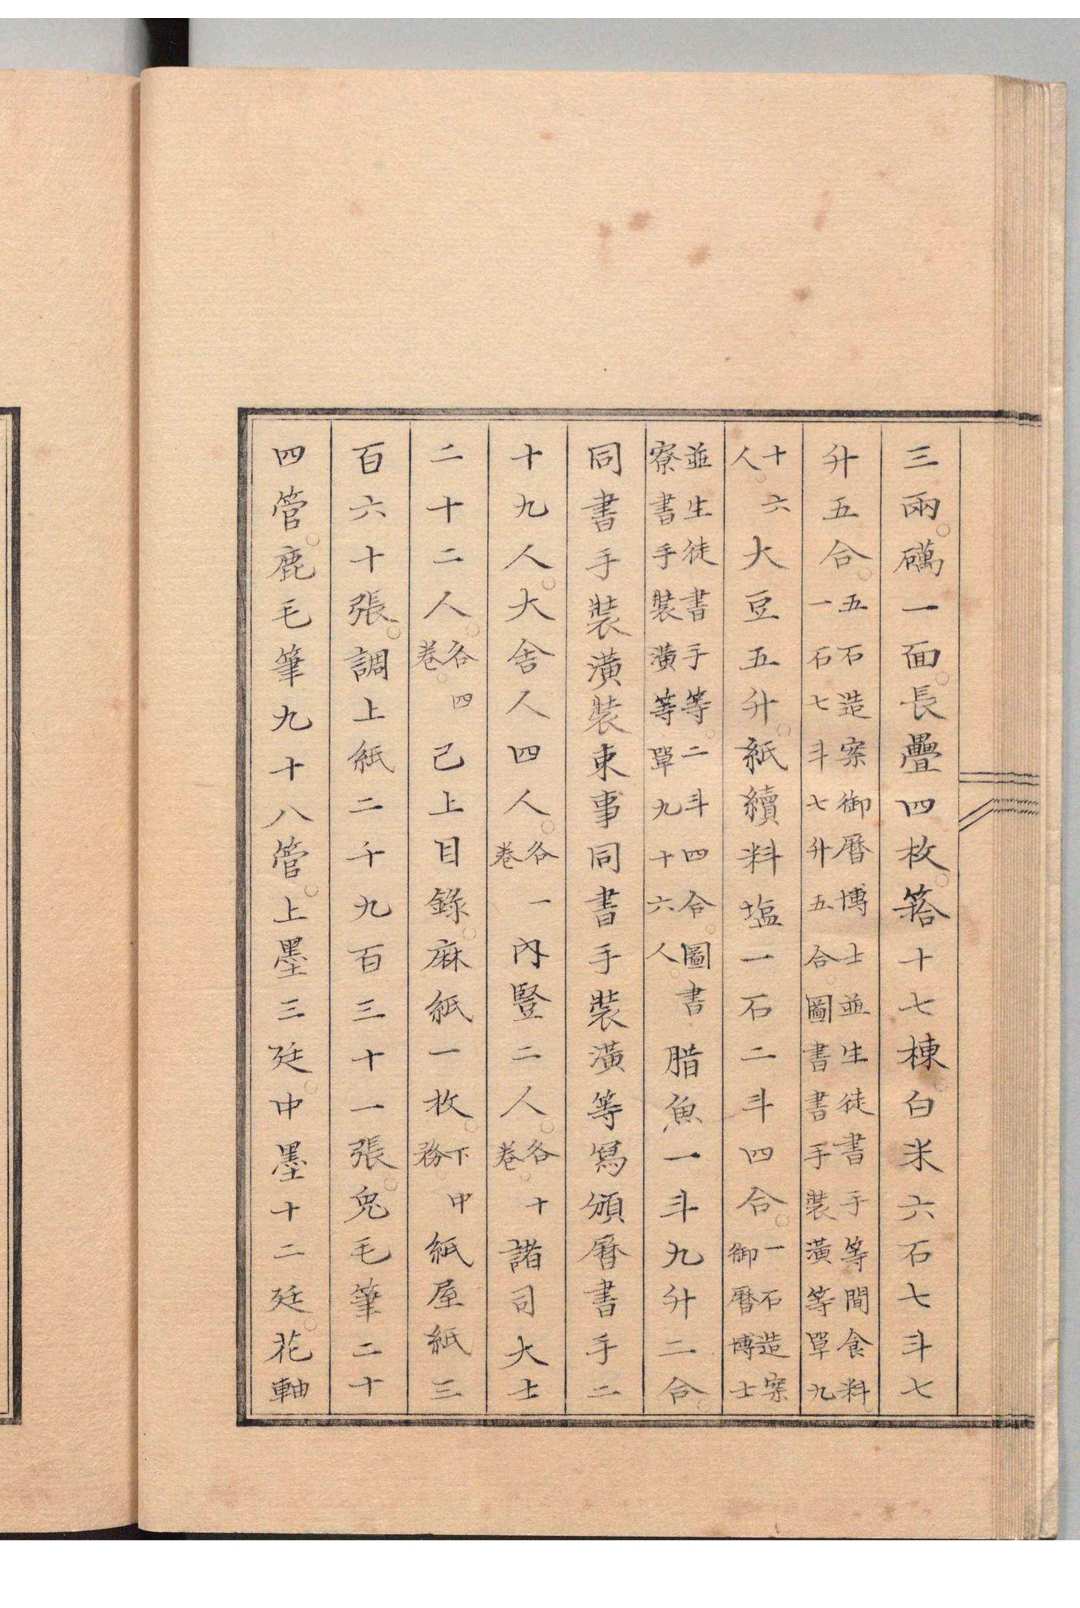 三兩。礪一面。長疊四枚。箬十七棟。白米六石七斗七
升五合。五石造案御曆博士並生徒書手等間食料
一石七斗七升五合。圖書書手裝潢等單九
十六
人。大豆五升。紙續料塩一石二斗四合。一石造案
御曆博士
並生徒書手等。二斗四合。圖書
寮書手裝潢等單九十六人腊魚一斗九升二合。
同書手裝潢裝束事同書手裝潢等寫頒曆書手二
十九人。大舍人四人。各一卷內豎二人。各十卷。諸司大士
二十二人。各四卷。已上目錄。麻紙一枚。下中務紙屋紙三
百六十張。調上紙二千九百三十一張。兔毛筆二十
四管。鹿毛筆九十八管。上墨三廷。中墨十二廷。花軸